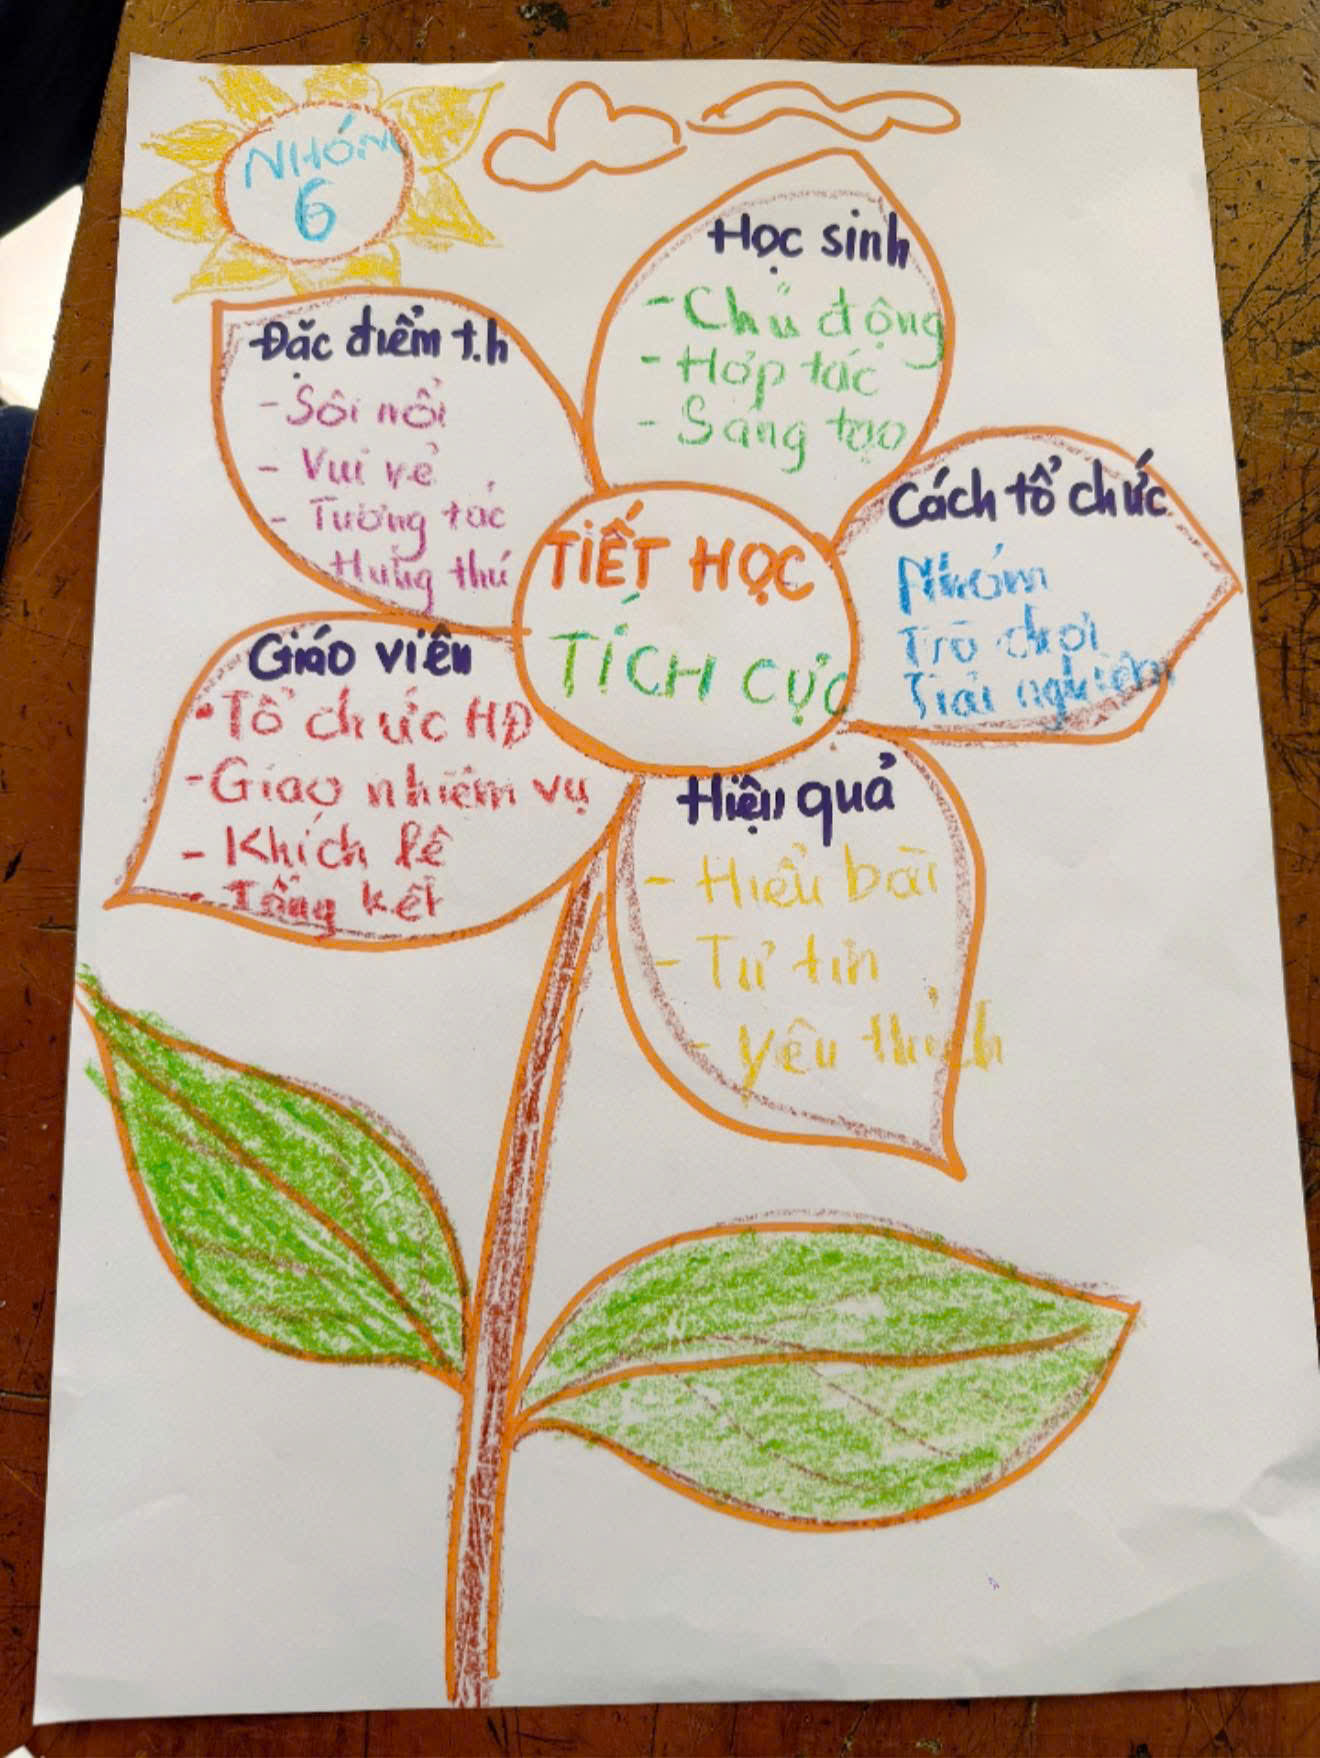 NHÓM
6
Đặc điểm t.h
- Sôi nổi
- Vui vẻ
- Tương tác
Hứng thú
Học sinh
- Chủ động
- Hợp tác
- Sáng tạo
Cách tổ chức
Nhóm
Trò chơi
Trải nghiệm
TIẾT HỌC
TÍCH CỰC
Giáo viên
- Tổ chức HĐ
- Giao nhiệm vụ
- Khích lệ
- Tổng kết
Hiệu quả
- Hiểu bài
- Tự tin
- Yêu thích